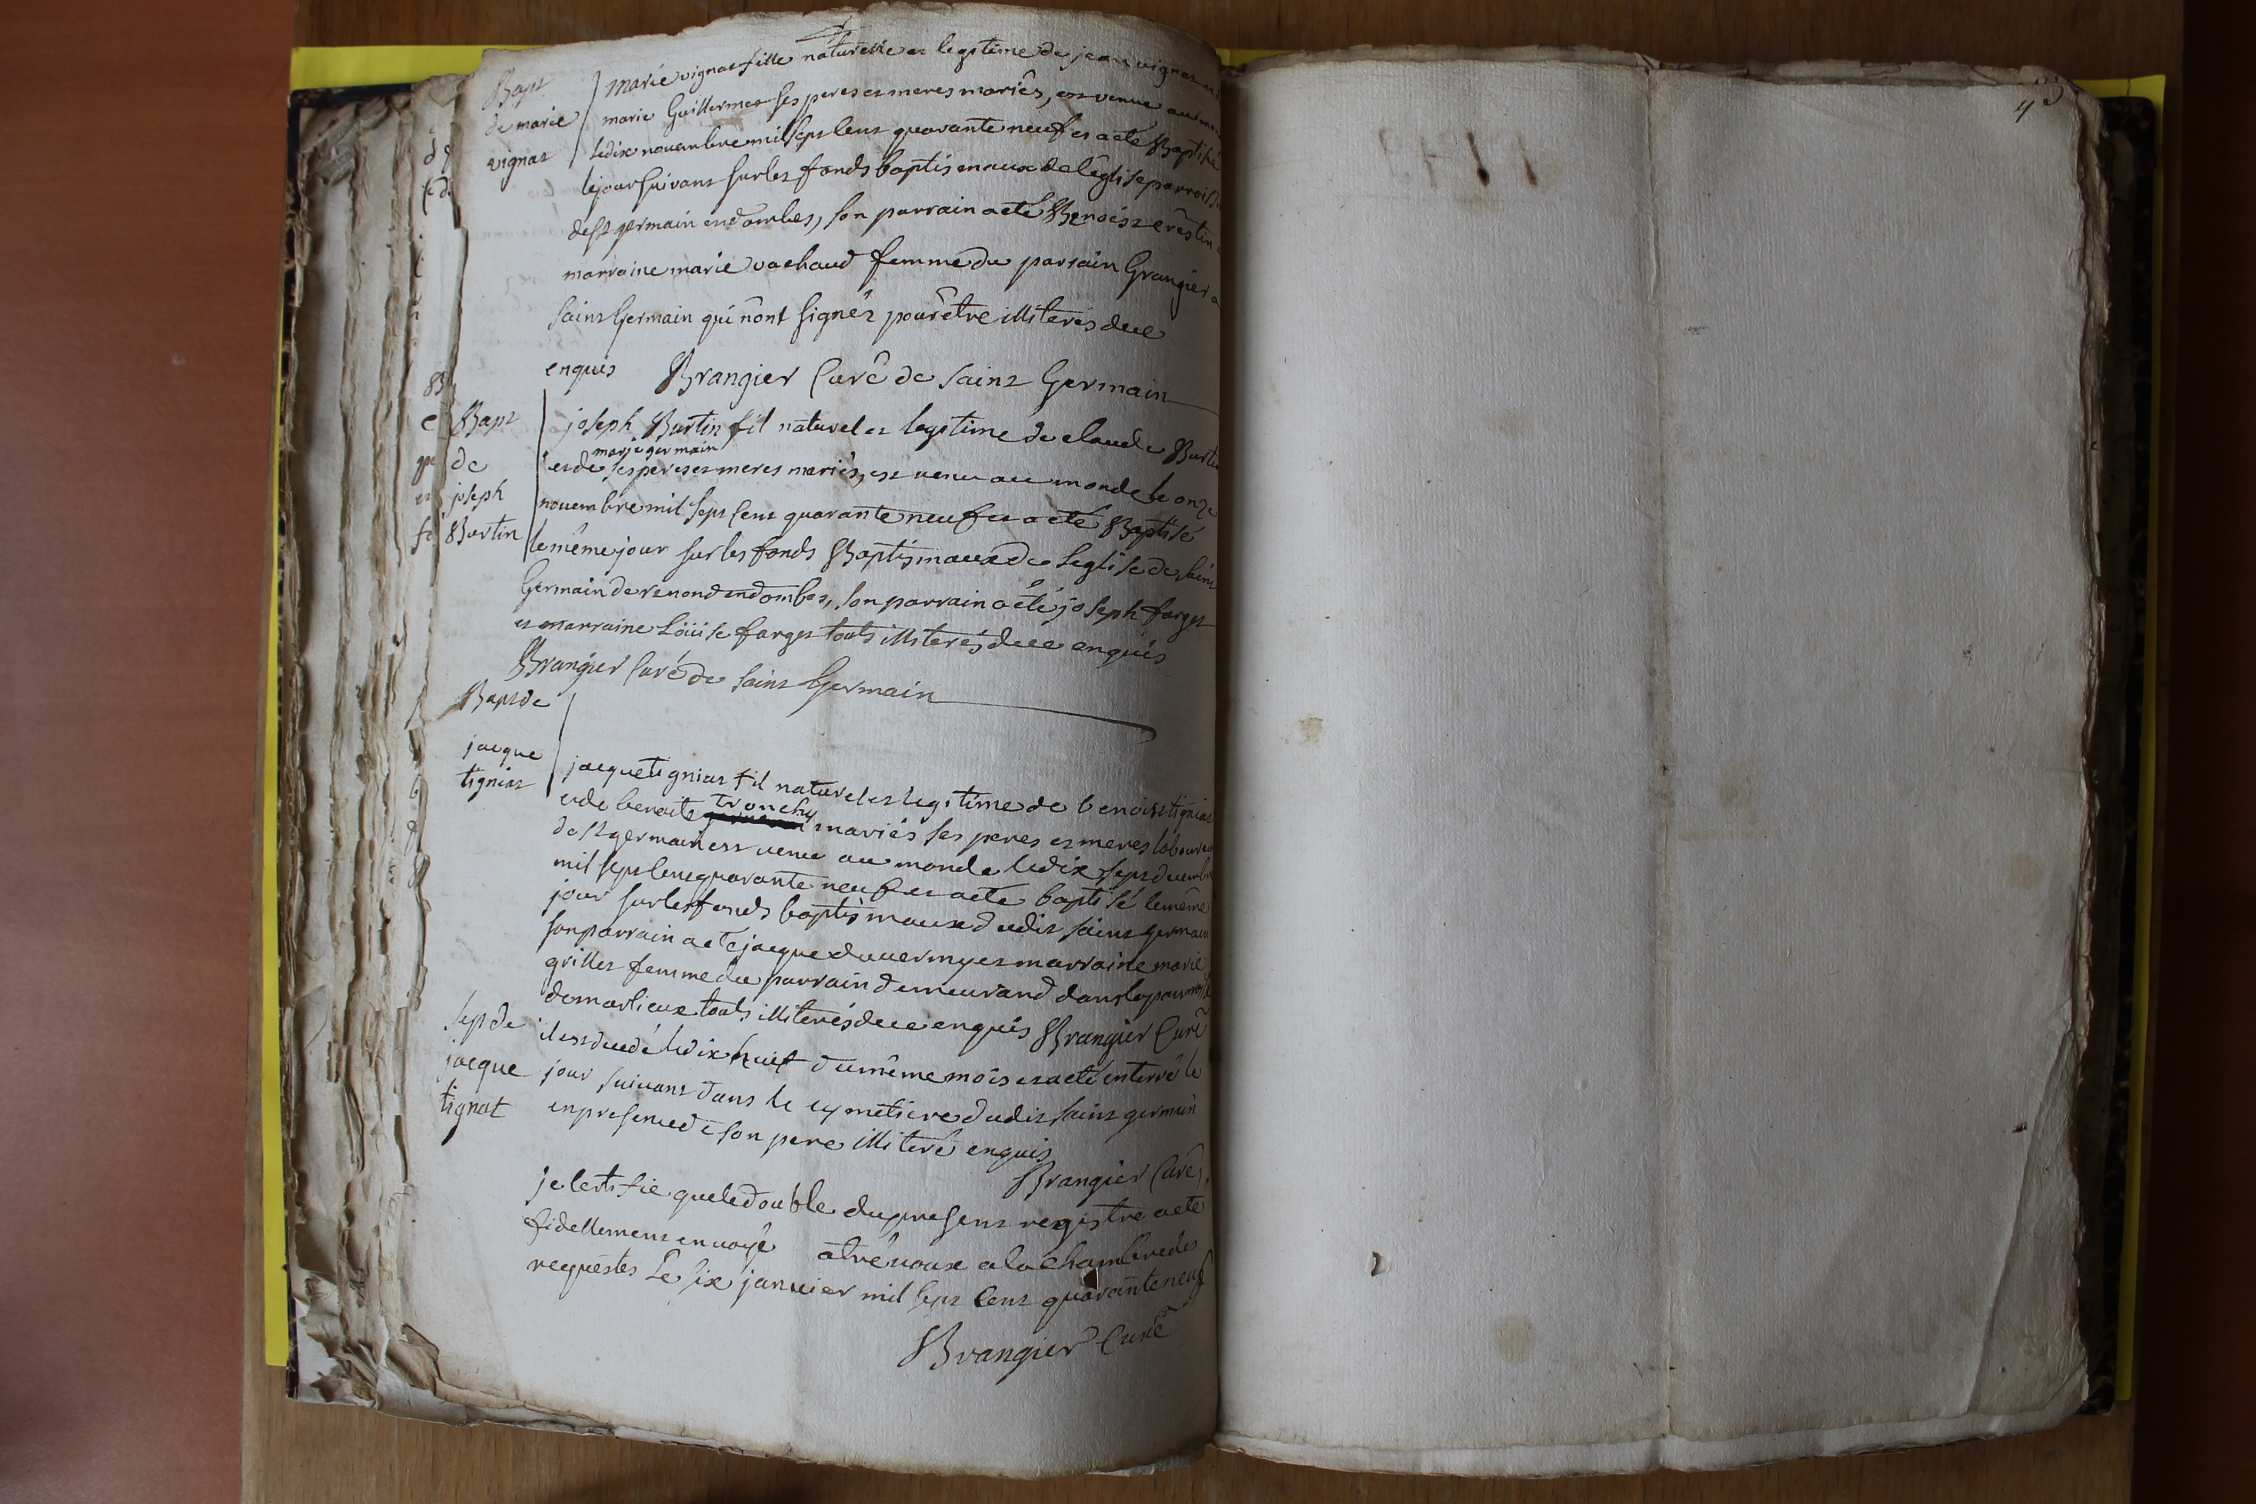 Bapt
de marie
vignat
marie vignat fille naturelle et legitime de jean vignat et
marie Guillermet ses peres et meres mariés, est venue au
le dix novembre mil sept cent quarante neuf et a eté Baptisé
le jour suivant sur les fonds baptismaux de l'église
de st germain en dombes, son parrain a eté Benoist
marraine marie vachaud femme du parrain Grangier a
saint Germain qui n'ont signés pour être illiterés de ce
enquis Brangier Curé de saint Germain
Bapt
de
joseph
Burtin
joseph Burtin fil naturel et legitime de claude Burtin
marie germain
et de ses peres et meres mariés, est venu au monde le onze
novembre mil sept cent quarante neuf et a eté Baptisé
le même jour sur les fonds Baptismaux de leglise de saint
Germain de renond en dombes, son parrain a eté joseph farges
et marraine Loüise farges touts illiterés de ce enquis
Brangier Curé de saint Germain
Bapt de
jacque
tigniat
jacque tigniat fil naturel et legitime de benoist tigniat
tronchy
et de benoite mariés ses peres et meres laboureurs
de st germain est venu au monde le dix sept decembre
mil sept cent quarante neuf et a eté baptisé le même
jour sur les fonds baptismaux dudit saint germain
son parrain a eté jacque duverny et marraine marie
grillet femme du parrain demeurand dans la parroisse
de marlieux touts illiterés de ce enquis Brangier Curé
Sep de
jacque
tignat
il est decedé le dix huit du même mois et a eté enterré le
jour suivant dans le cymetiere dudit saint germain
en presence de son pere illiteré enquis
Brangier Curé
je certifie que le double du present registre a eté
fidellement envoyé a trêvoux a la chambre des
requestes Le six janvier mil sept cent quarante neuf
Brangier Curé